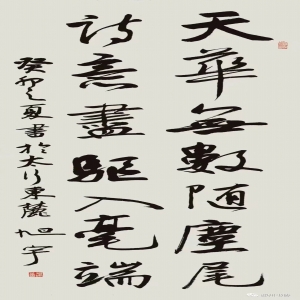 天華無數随塵尾
詩意盡驅入毫端
癸卯之夏書於太行東麓旭宇